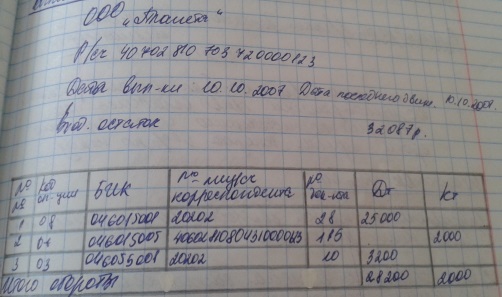 ООО "Планета"
Р/сч 40702810703720000123
Дата вып-ки: 10.10.2007 Дата последнего движ. 10.10.2007.
Вход. остаток 32087р.
№ № Код оп-ции БИК № л/с корреспондента № док-нта Дт Кт
1 08 046015001 20202 28 25000
2 01 046015005 185 2000
3 03 046055001 20202 10 3200
Итого обороты 28200 2000